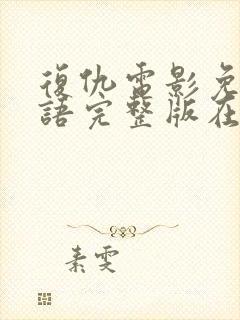 復仇電影免
語完整版在
素雯